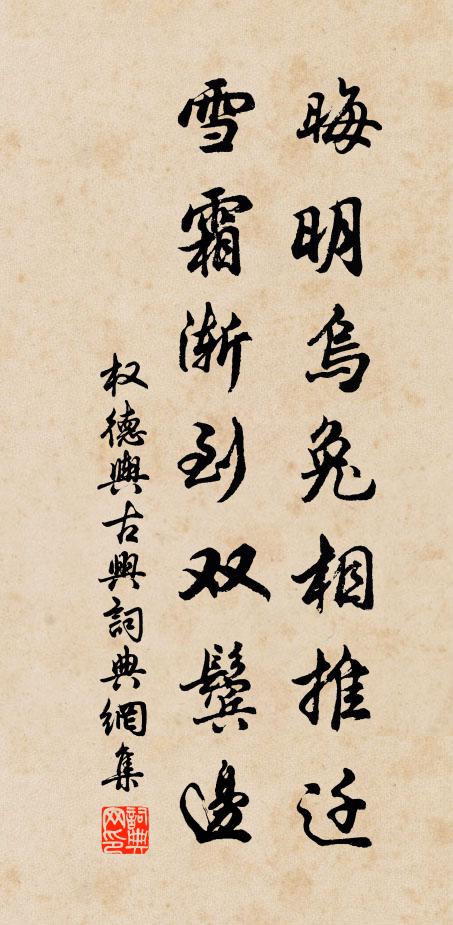 晦明乌兔相推迁
雪霜渐到双鬓邊
权德舆古興詞典網集
詞典网印